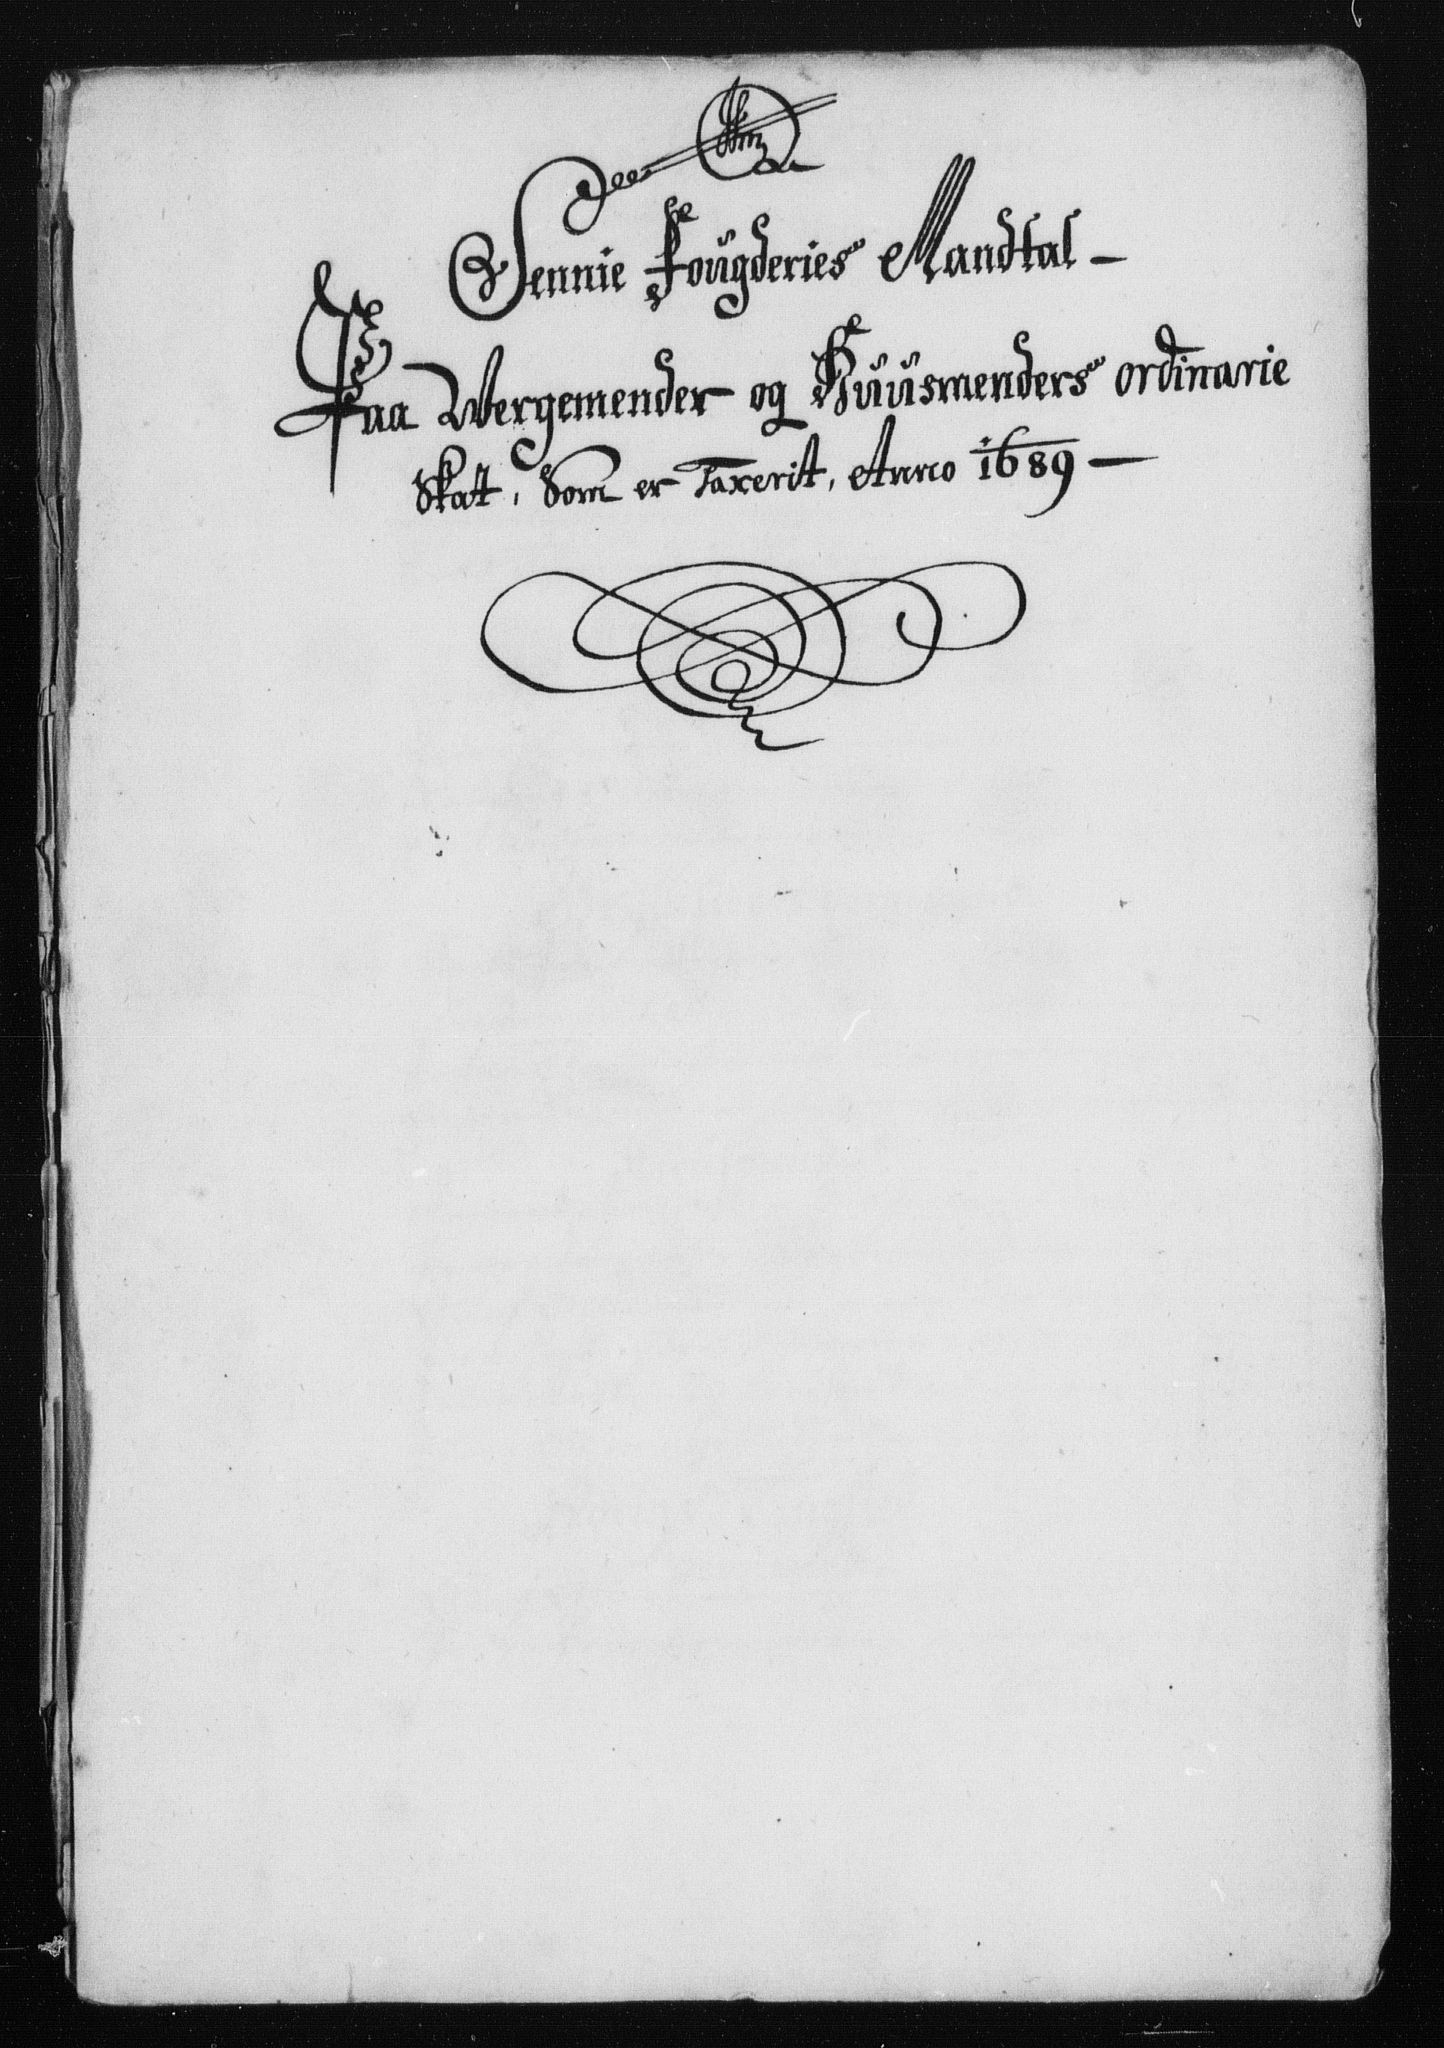 Sennie Fougderies Mandtal –
Paa Wergemender og Huusmenders ordinarie
Skat, Som er Taxerit, Anno 1689 –